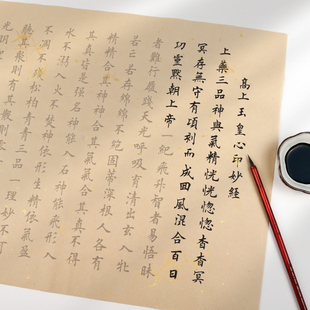 高上玉皇心印妙經
上藥三品神與氣精恍恍惚惚杳杳冥
冥存無守有頃刻而成回風混合百日
功靈默朝上帝一紀飛升智者易悟昧
者難行履踐天光呼吸育清出玄入牝
若亡若存綿綿不絕固蒂深根人各有
精精合其神神合其氣氣合其真不得
其真皆是強名神能入石神能飛形入
水不溺入火不焚神依形生精依氣盈
不凋不殘松柏青青三品一理妙不可
聽其聚則有其散則